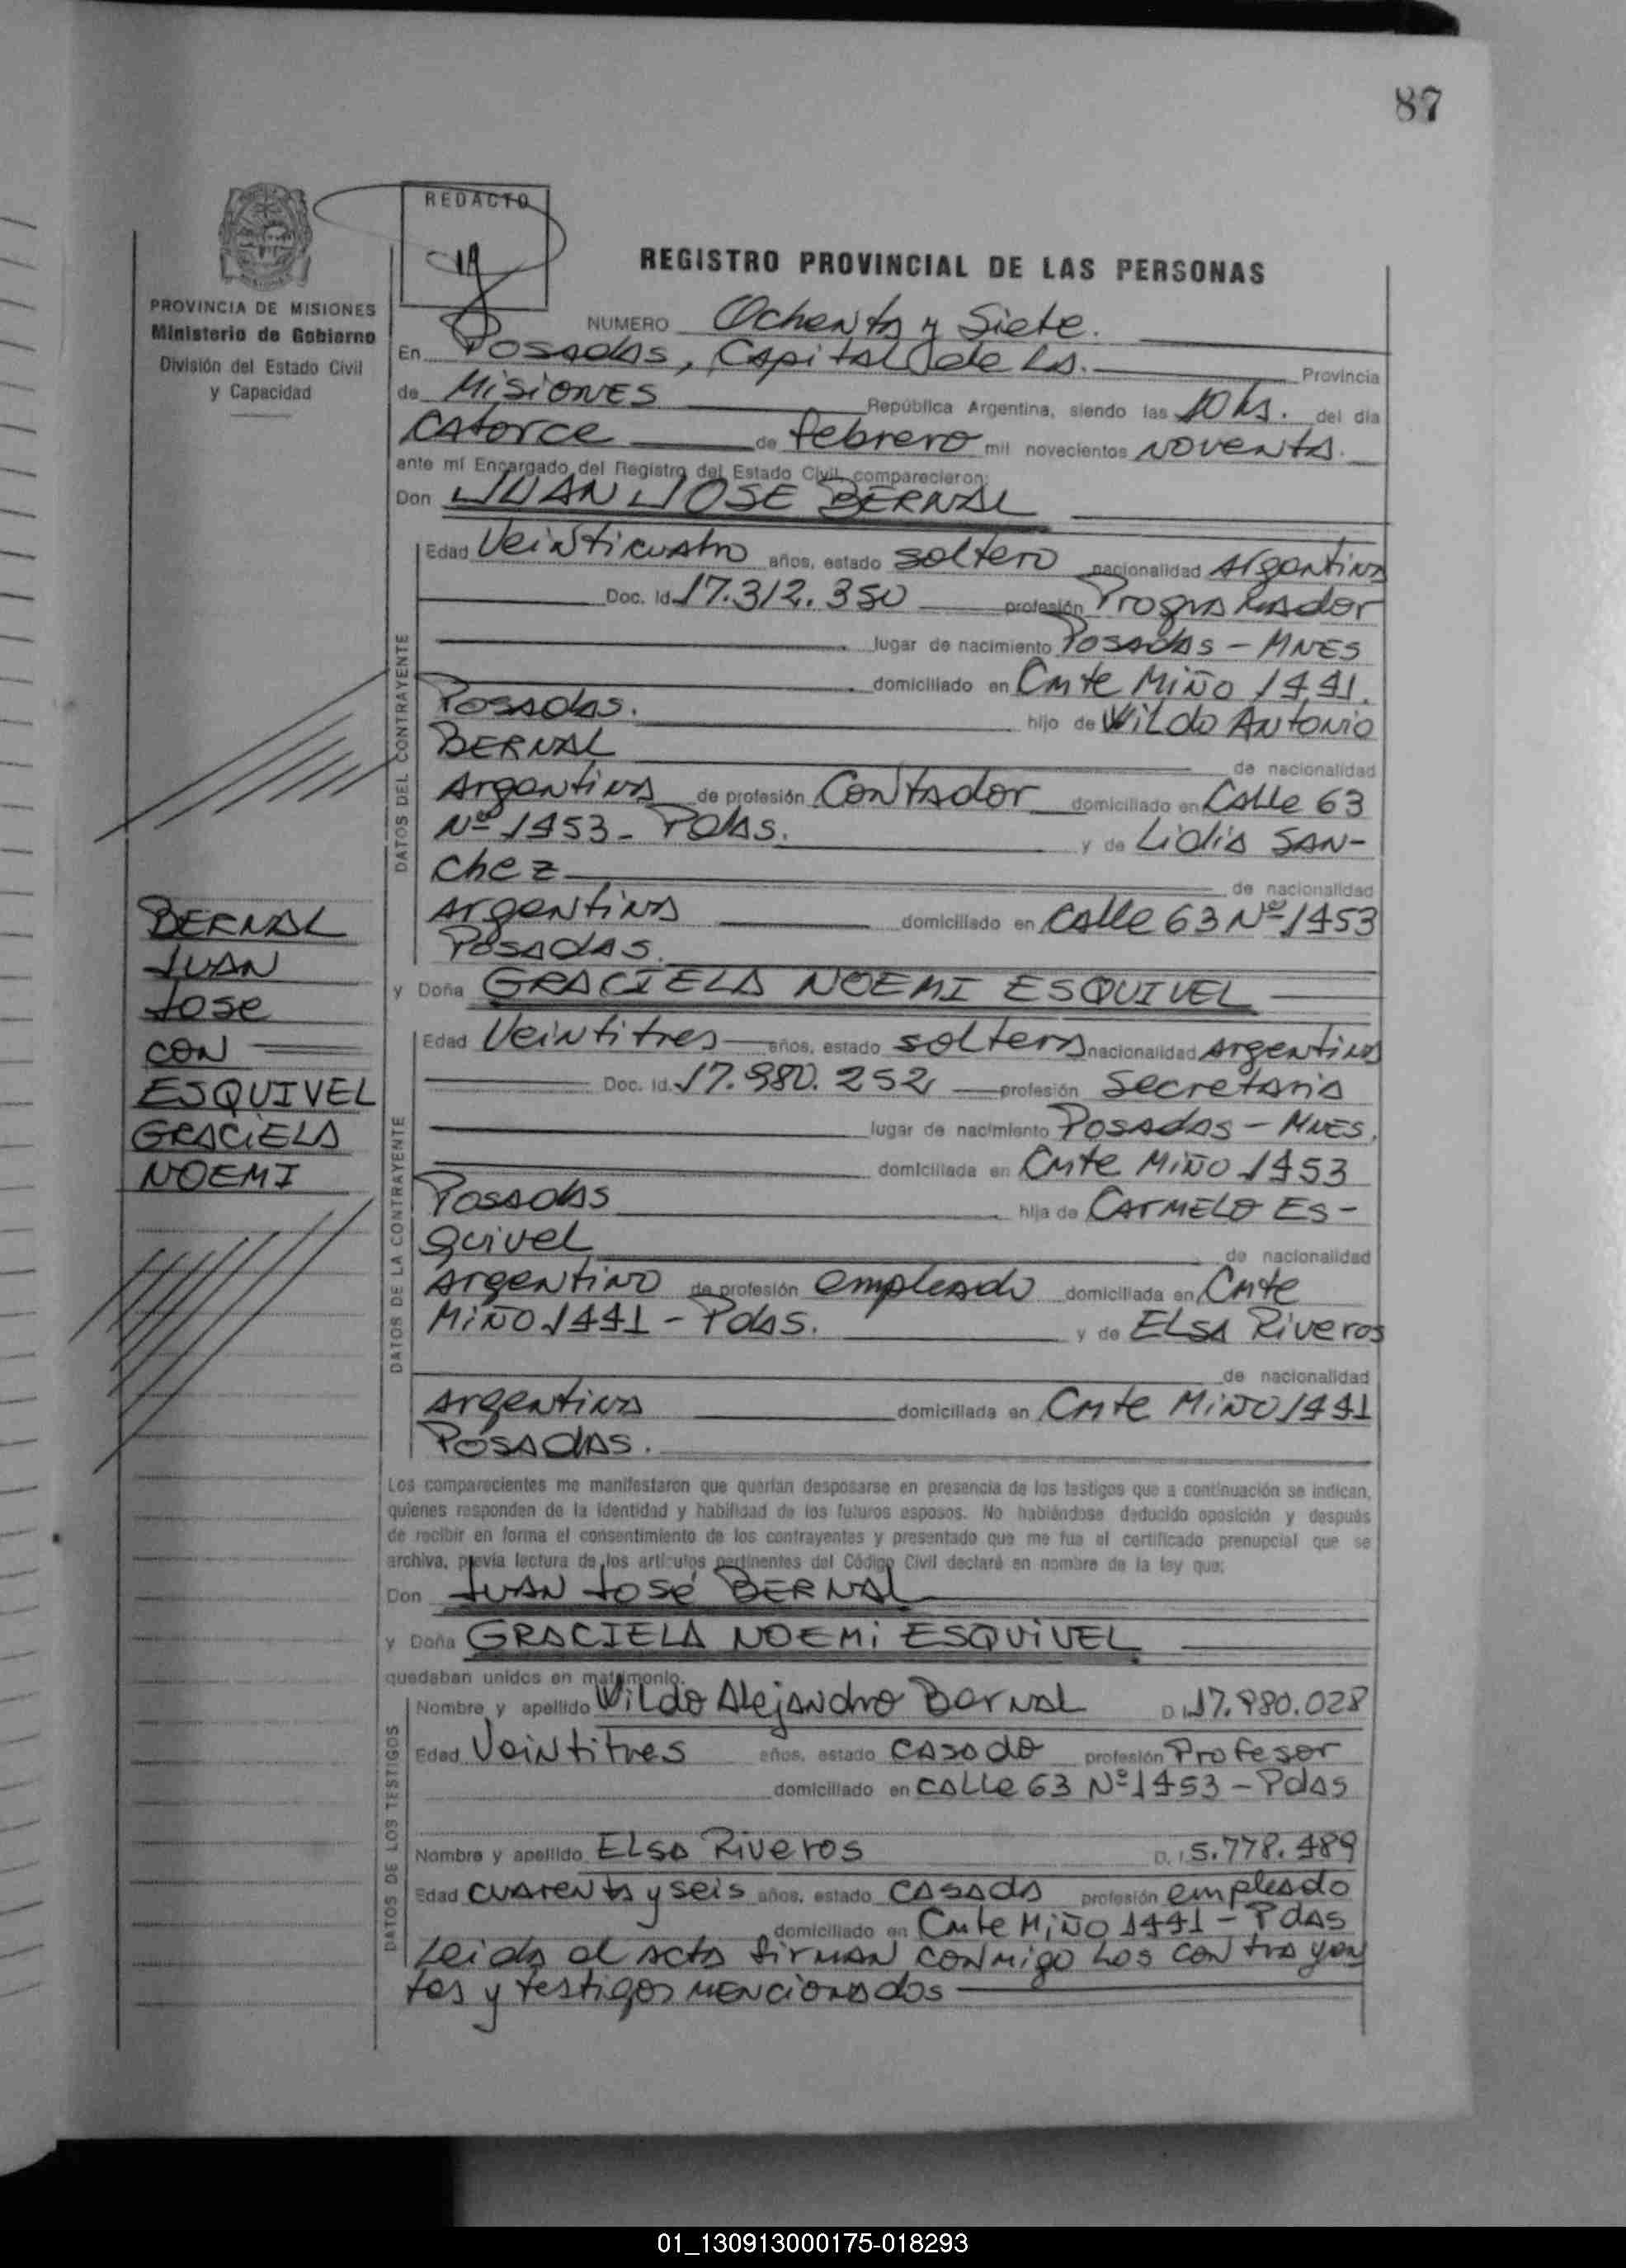 87
REDACTO
REGISTRO PROVINCIAL DE LAS PERSONAS
PROVINCIA DE MISIONES
Ministerio de Gobierno
División del Estado Civil
y Capacidad
NUMERO Ochenta y Siete.
En Posadas, Capital de La. Provincia
de Misiones República Argentina, siendo las 10 hs. del día
Catorce de febrero mil novecientos noventa.
ante mí Encargado del Registro del Estado Civil, comparecieron:
Don JUAN JOSE BERNAL
DATOS DEL CONTRAYENTE
Edad Veinticuatro años, estado soltero nacionalidad Argentina
Doc. Id. 17.312.350 profesión Programador
lugar de nacimiento Posadas - Mnes
domiciliado en Cmte Miño 1441.
Posadas. hijo de Wildo Antonio
BERNAL de nacionalidad
Argentina de profesión Contador domiciliado en Calle 63
Nº 1453 - Pdas. y de Lidia San-
chez de nacionalidad
Argentina domiciliado en Calle 63 Nº 1453
Posadas.
y Doña GRACIELA NOEMI ESQUIVEL
BERNAL
JUAN
Jose
CON
ESQUIVEL
GRACIELA
NOEMI
DATOS DE LA CONTRAYENTE
Edad Veintitres años, estado soltera nacionalidad Argentina
Doc. Id. 17.980.252 profesión Secretaria
lugar de nacimiento Posadas - Mnes.
domiciliada en Cmte Miño 1453
Posadas hija de Carmelo Es-
quivel de nacionalidad
Argentino de profesión empleado domiciliada en Cmte
Miño 1441 - Pdas. y de Elsa Riveros
de nacionalidad
Argentina domiciliada en Cmte Miño 1441
Posadas.
Los comparecientes me manifestaron que querían desposarse en presencia de los testigos que a continuación se indican,
quienes responden de la identidad y habilidad de los futuros esposos. No habiéndose deducido oposición y después
de recibir en forma el consentimiento de los contrayentes y presentado que me fue el certificado prenupcial que se
archiva, previa lectura de los artículos pertinentes del Código Civil declaré en nombre de la ley que:
Don JUAN JOSÉ BERNAL
y Doña GRACIELA NOEMi ESQUIVEL
quedaban unidos en matrimonio.
DATOS DE LOS TESTIGOS
Nombre y apellido Wildo Alejandro Bernal D.I. 17.980.028
Edad Veintitres años, estado casado profesión Profesor
domiciliado en Calle 63 Nº 1453 - Pdas
Nombre y apellido Elsa Riveros D.I. 5.778.489
Edad cuarenta y seis años, estado casada profesión empleado
domiciliado en Cmte Miño 1441 - Pdas
Leida el acta firman conmigo los contrayen
tes y testigos mencionados
01_130913000175-018293